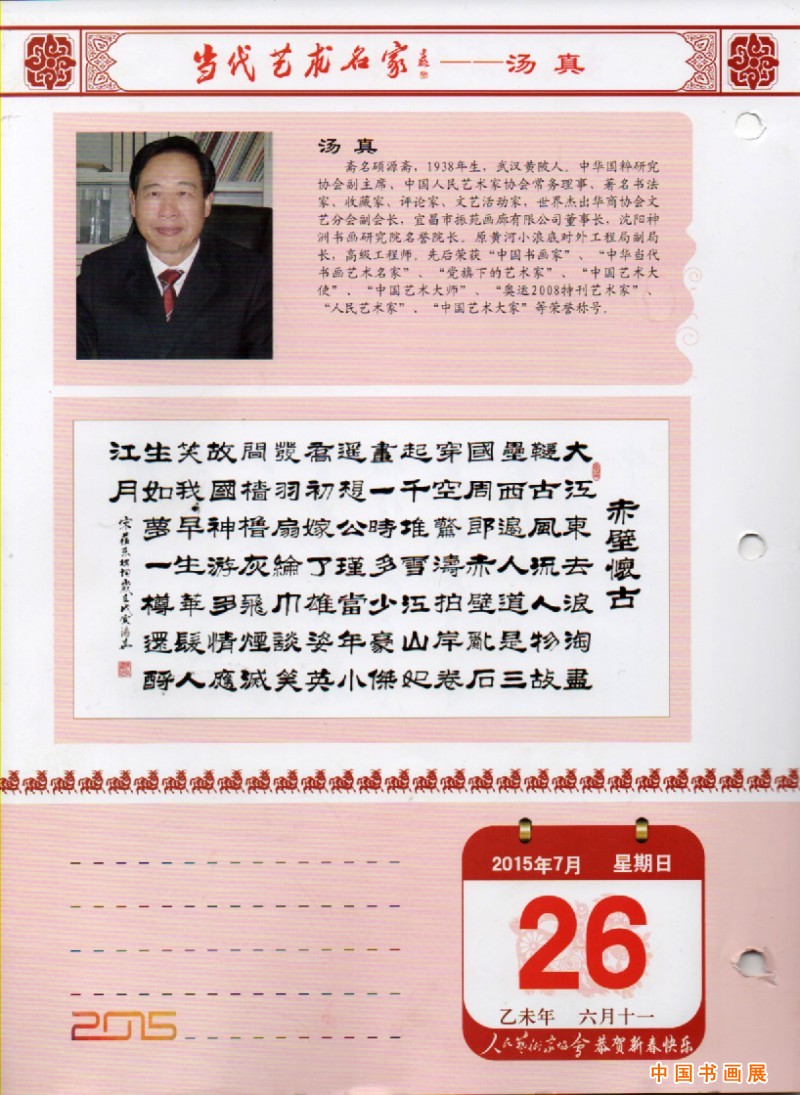 当代艺术名家——汤真
汤 真
斋名硕源斋，1938年生，武汉黄陂人。中华国粹研究
协会副主席、中国人民艺术家协会常务理事、著名书法
家、收藏家、评论家、文艺活动家，世界杰出华商协会文
艺分会副会长，宜昌市振苑画廊有限公司董事长，沈阳神
洲书画研究院名誉院长。原黄河小浪底对外工程局副局
长，高级工程师。先后荣获“中国书画家”、“中华当代
书画艺术名家”、“党旗下的艺术家”、“中国艺术大
使”、“中国艺术大师”、“奥运2008特刊艺术家”、
“人民艺术家”、“中国艺术大家”等荣誉称号。
赤壁懷古
大江東去浪淘盡
古風流人物故
壘西邊人道是三
國周郎赤壁亂石
穿空驚濤拍岸卷
起千堆雪江山如
畫一時多少豪傑
遙想公瑾當年小
喬初嫁了雄姿英
發羽扇綸巾談笑
間檣櫓灰飛煙滅
故國神游多情應
笑我早生華髮人
生如夢一樽還酹
江月
2015年7月 星期日
26
乙未年 六月十一
人民藝術家協會 恭贺新春快乐
2015
中国书画展